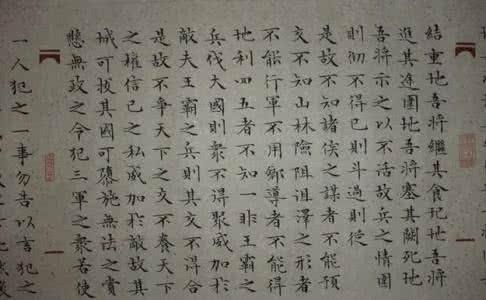 結重地吾將繼其食圮地吾將
進其途圍地吾將塞其闕死地
吾將示之以不活故兵之情圍
則御不得已則斗過則從
是故不知諸侯之謀者不能預
交不知山林險阻沮澤之形者
不能行軍不用鄉導者不能得
地利四五者不知一非王霸之
兵伐大國則衆不得聚威加於
敵夫王霸之兵則其交不得合
是故不爭天下之交不養天下
之權信己之私威加於敵故其
城可拔其國可隳施無法之賞
懸無政之令犯三軍之衆若使
一人犯之一事勿告以言犯之